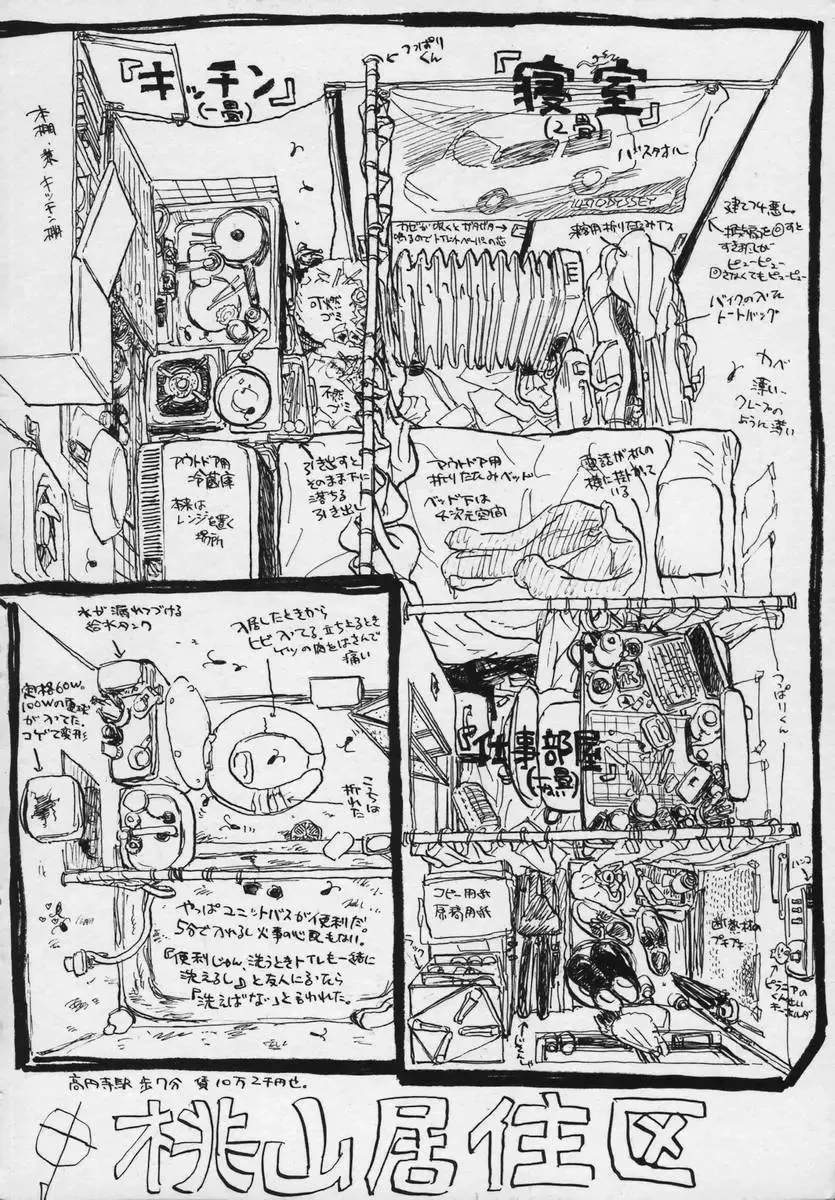 つっぱり
くん
『キッチン』
(一畳)
『寝室』
(2畳)
バスタオル
AUTODYSSEY
本棚・兼・キッチン棚
建てつけ悪し。
すと
すき間が
ピューピュー
さなくてもピューピュー
バイクの入った
トートバッグ
カベ
薄い、
クレープの
ように薄い
カゼが吹くと
鳴るのでトイレットペーパーの芯
来客用折りたたみイス
可燃
ゴミ
不燃
ゴミ
アウトドア用
冷蔵庫
本来は
レンジを置く
場所
引き出すと
そのまま下に
落ちる
引き出し
アウトドア用
折りたたみベッド
ベッド下は
4次元空間
電話が机の
横に掛かって
いる
水が漏れつづける
給水タンク
入居したときから
ヒビ入ってる。立ち上るとき
肉をはさんで
痛い
定格60W。
100Wの電球
が入ってた。
コゲて変形
こっちは
折れた
『仕事部屋』
つっぱりくん
やっぱユニットバスが便利だ
5分で入れるし火事の心配もない。
『便利じゃん、洗うときトイレも一緒に
洗えるし』と友人に
『洗えばな』と言われた。
コピー用紙
原稿用紙
断熱材の
プチプチ
ハンコ
ピラニアの
キーホルダー
高円寺駅 歩7分 賃10万2千円也。
桃山居住区